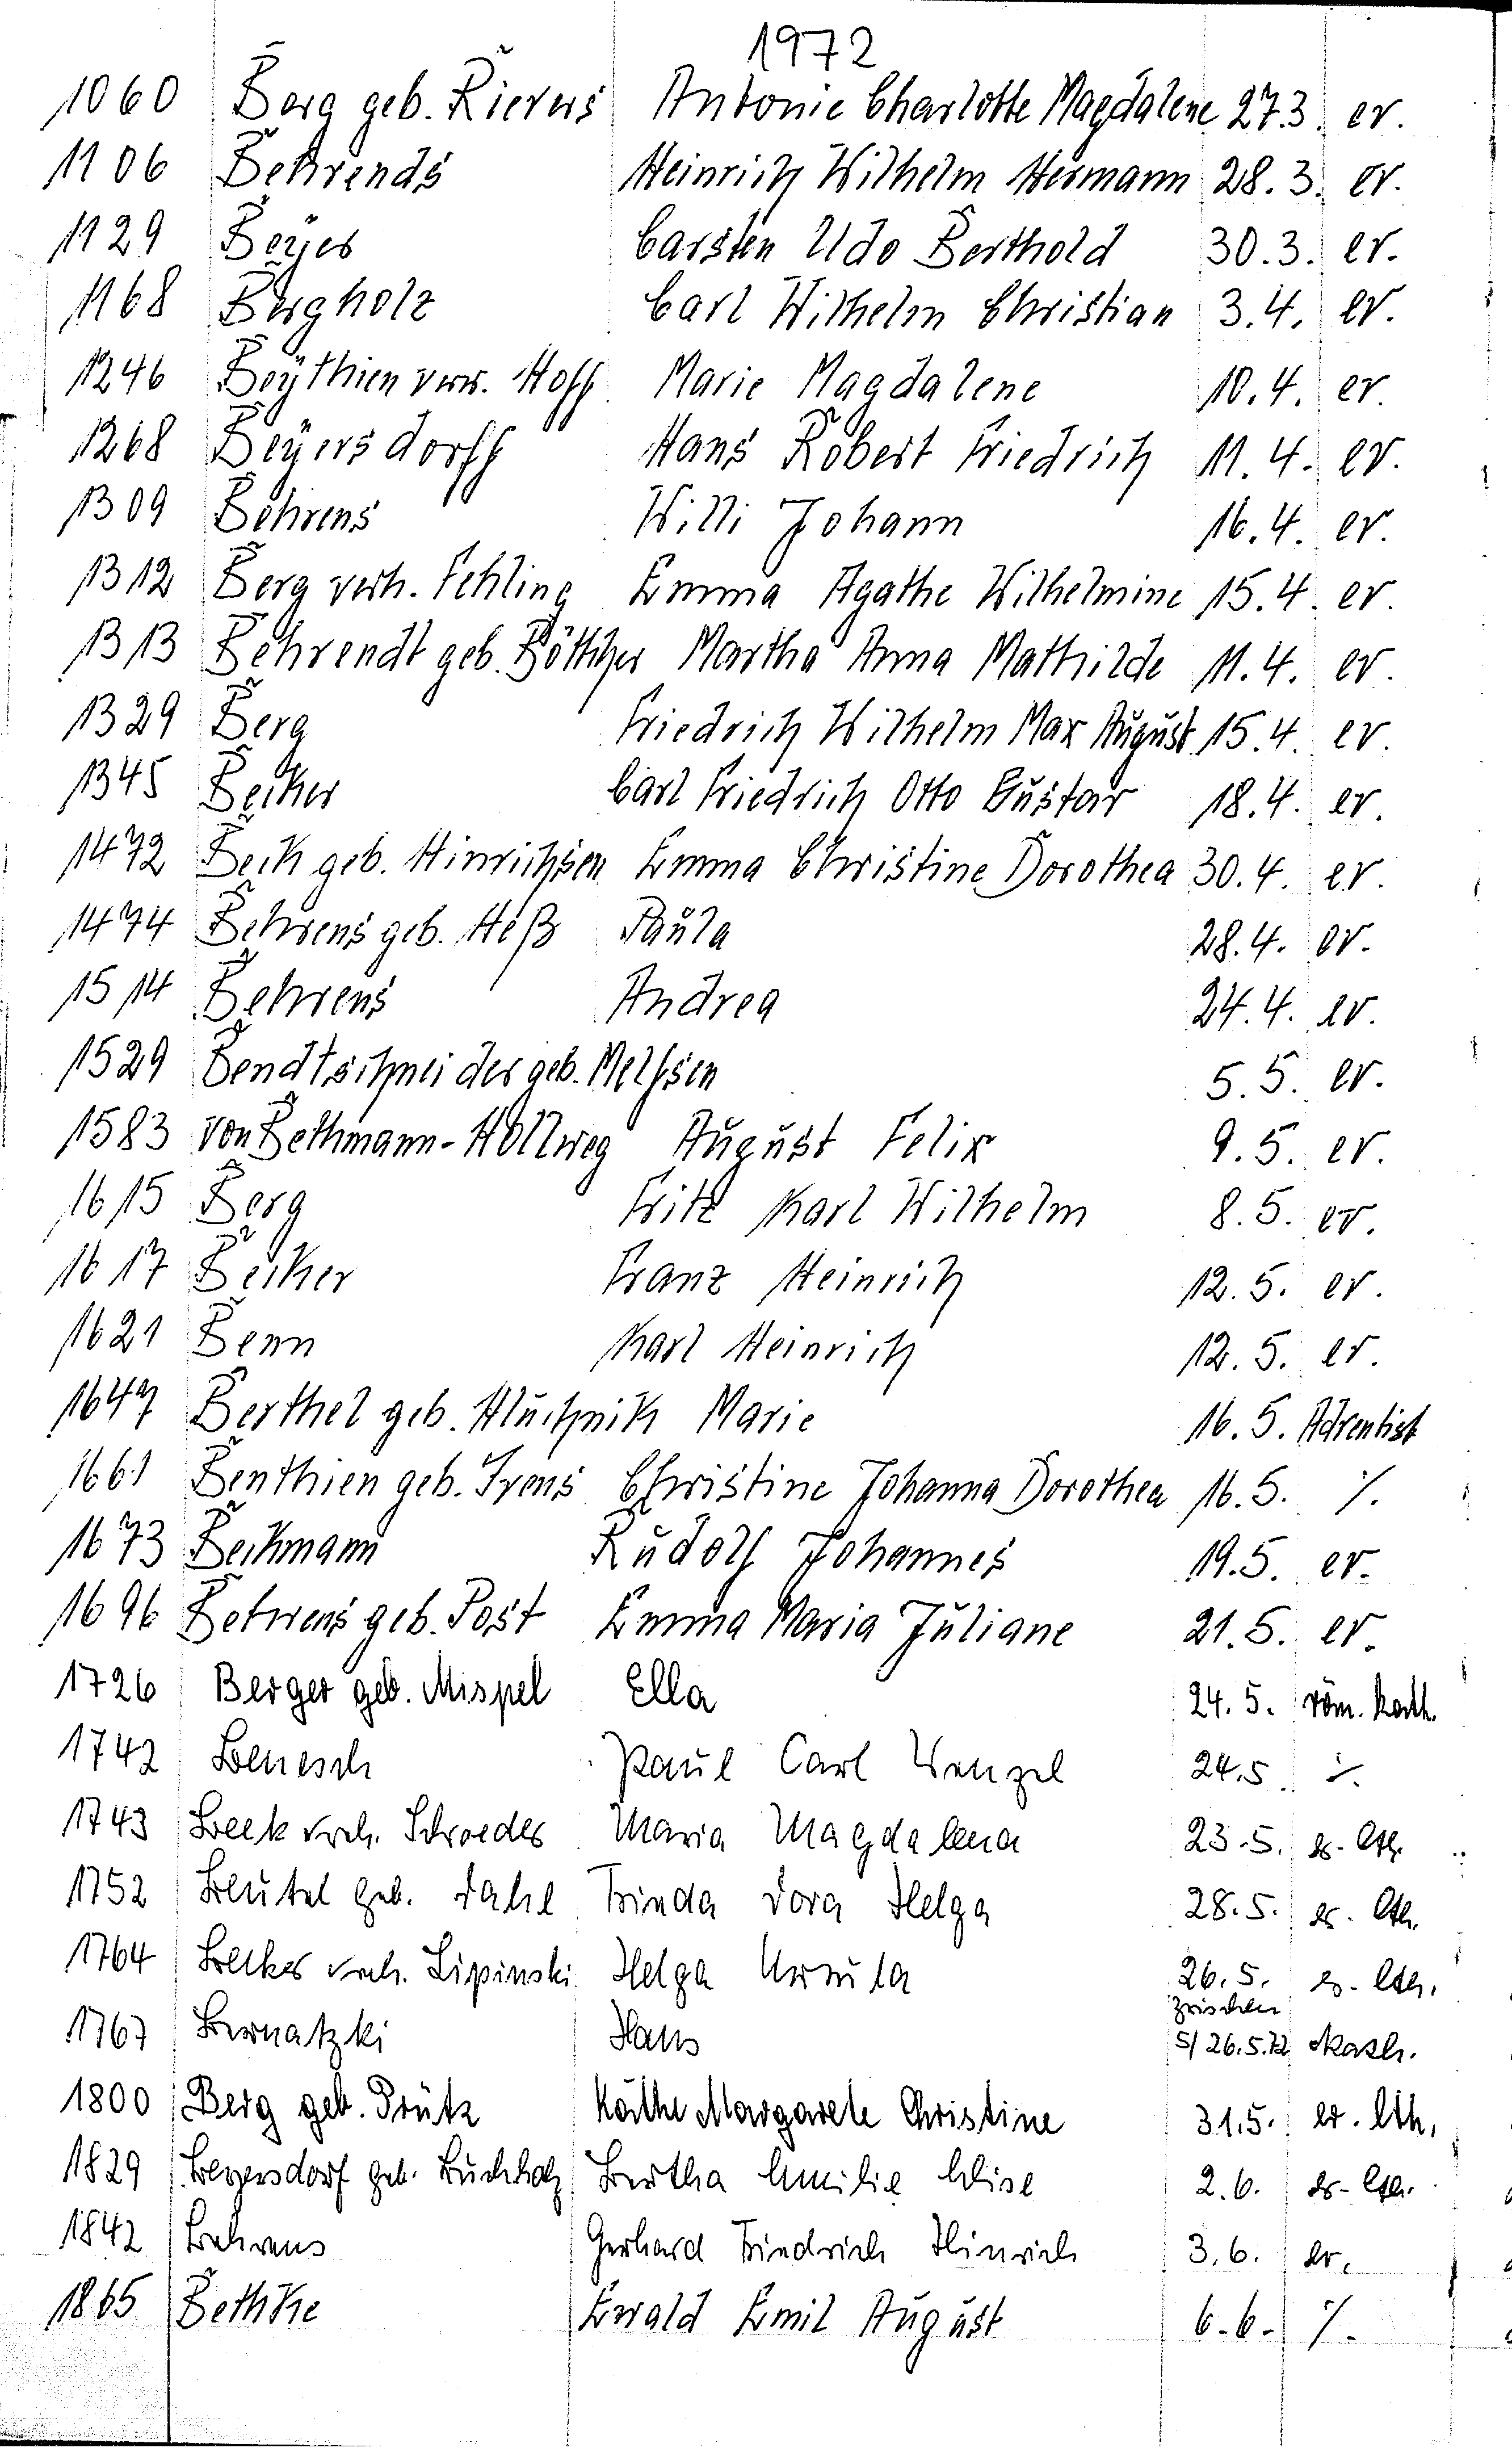 1972
1060 Berg geb. Rievers Antonie Charlotte Magdalene 27.3. ev.
1106 Behrends Heinrich Wilhelm Hermann 28.3. ev.
1129 Beyer Carsten Udo Berthold 30.3. ev.
1168 Bergholz Carl Wilhelm Christian 3.4. ev.
1246 Beythien verw. Hoff Marie Magdalene 10.4. ev.
1268 Beyersdorff Hans Robert Friedrich 11.4. ev.
1309 Behrens Willi Johann 16.4. ev.
1312 Berg verh. Fehling Emma Agathe Wilhelmine 15.4. ev.
1313 Behrendt geb. Böttcher Martha Anna Mathilde 11.4. ev.
1329 Berg Friedrich Wilhelm Max August 15.4. ev.
1345 Becker Carl Friedrich Otto Gustav 18.4. ev.
1472 Beck geb. Hinrichsen Emma Christine Dorothea 30.4. ev.
1474 Behrens geb. Heß Paula 28.4. ev.
1514 Behrens Andrea 24.4. ev.
1529 Bendtschneider geb. Melfsen 5.5. ev.
1583 von Bethmann-Hollweg August Felix 9.5. ev.
1615 Berg Fritz Karl Wilhelm 8.5. ev.
1617 Becker Franz Heinrich 12.5. ev.
1621 Benn Karl Heinrich 12.5. ev.
1647 Berthel geb. Hluchnik Marie 16.5. Adventist
1661 Benthien geb. Ivens Christine Johanna Dorothea 16.5. %.
1673 Beckmann Rudolf Johannes 19.5. ev.
1696 Behrens geb. Post Emma Maria Juliane 21.5. ev.
1726 Berger geb. Mispel Ella 24.5. röm. kath.
1742 Benesch Paul Carl Wenzel 24.5. %.
1743 Beek verh. Schroeder Maria Magdalena 23.5. ev.-lth.
1752 Beutel geb. Dahl Frieda Dora Helga 28.5. ev.-lth.
1764 Becker verh. Lipinski Helga Ursula 26.5. ev.-lth.
zwischen
1767 Bernatzki Hans 5/26.5.72 kath.
1800 Berg geb. Prütz Käthe Margarete Christine 31.5. ev. lth.
1829 Beyersdorf geb. Buchholz Bertha Emilie Elise 2.6. ev.-lth.
1842 Behrens Gerhard Friedrich Hinrich 3.6. ev.
1865 Bethke Ewald Emil August 6.6. %.